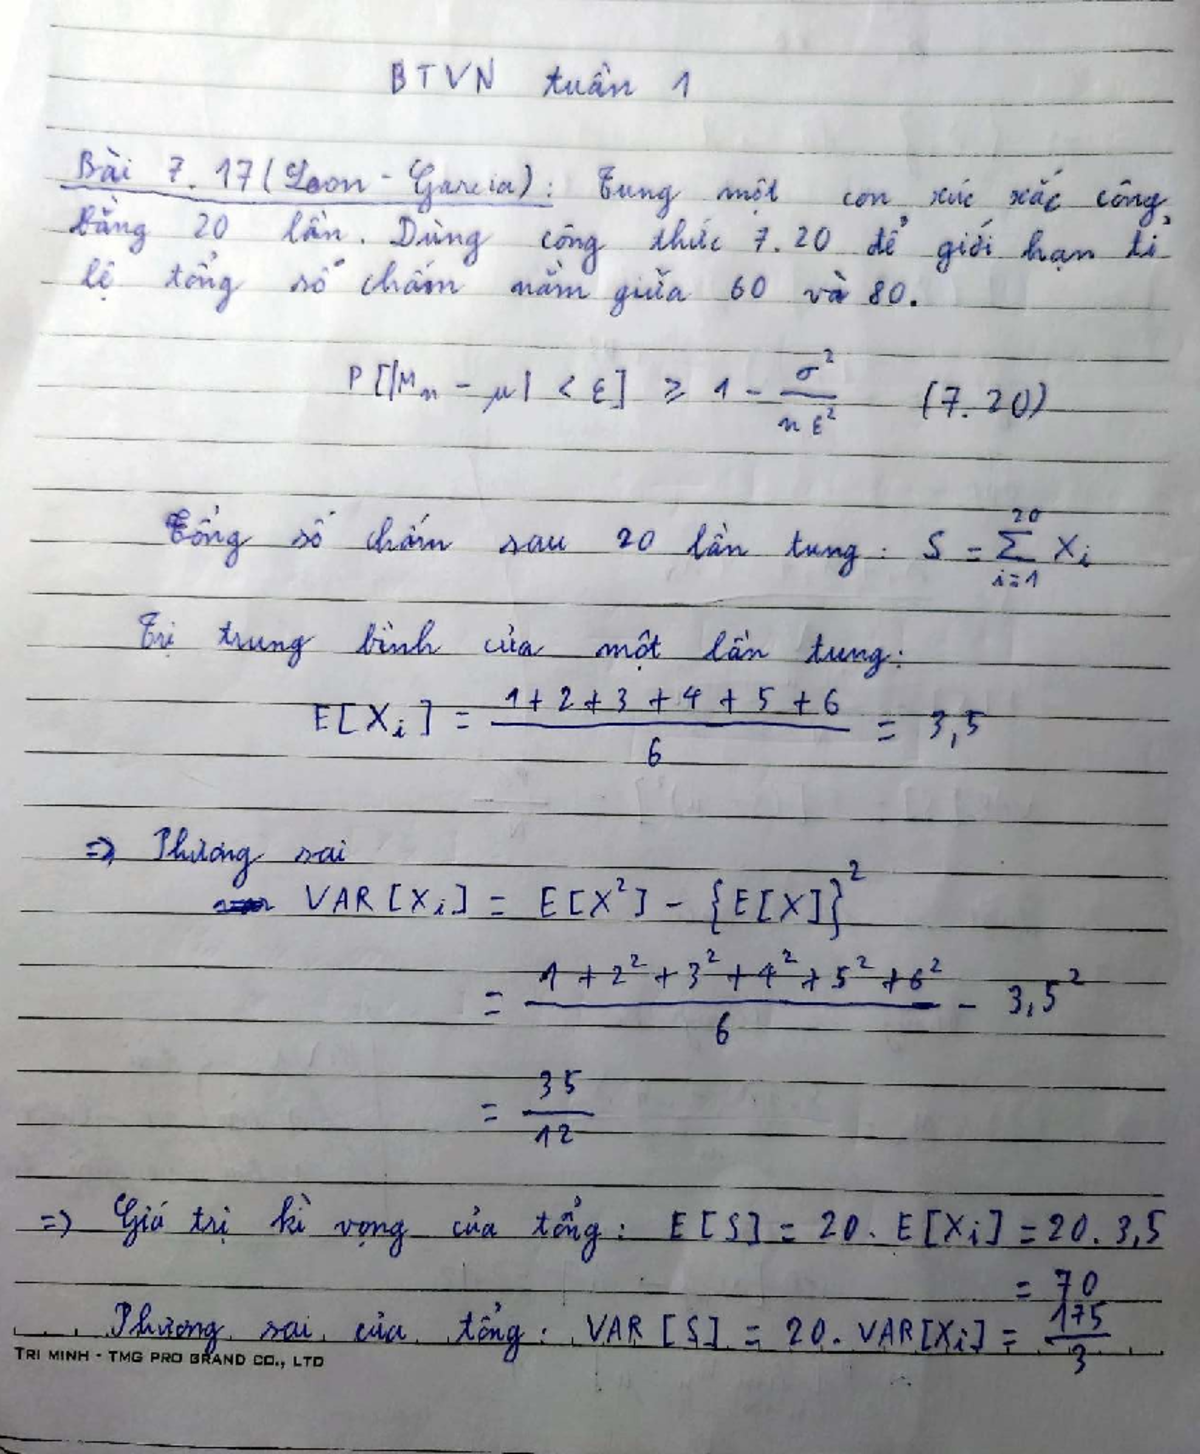 BTVN tuần 1
Bài 7.17 (Leon - Garcia): Tung một con xúc xắc công
bằng 20 lần. Dùng công thức 7.20 để giới hạn tỉ
lệ tổng số chấm nằm giữa 60 và 80.
P[|Mₙ - μ| < ε] ≥ 1 - σ²/(nε²) (7.20)
Tổng số chấm sau 20 lần tung: S = Σ_{i=1}^{20} Xᵢ
Trị trung bình của một lần tung:
E[Xᵢ] = (1+2+3+4+5+6)/6 = 3,5
=> Phương sai
VAR[Xᵢ] = E[X²] - {E[X]}²
= (1+2²+3²+4²+5²+6²)/6 - 3,5²
= 35/12
=> Giá trị kì vọng của tổng: E[S] = 20. E[Xᵢ] = 20. 3,5
= 70
Phương sai của tổng: VAR[S] = 20. VAR[Xᵢ] = 175/3
TRI MINH - TMG PRO BRAND CO., LTD